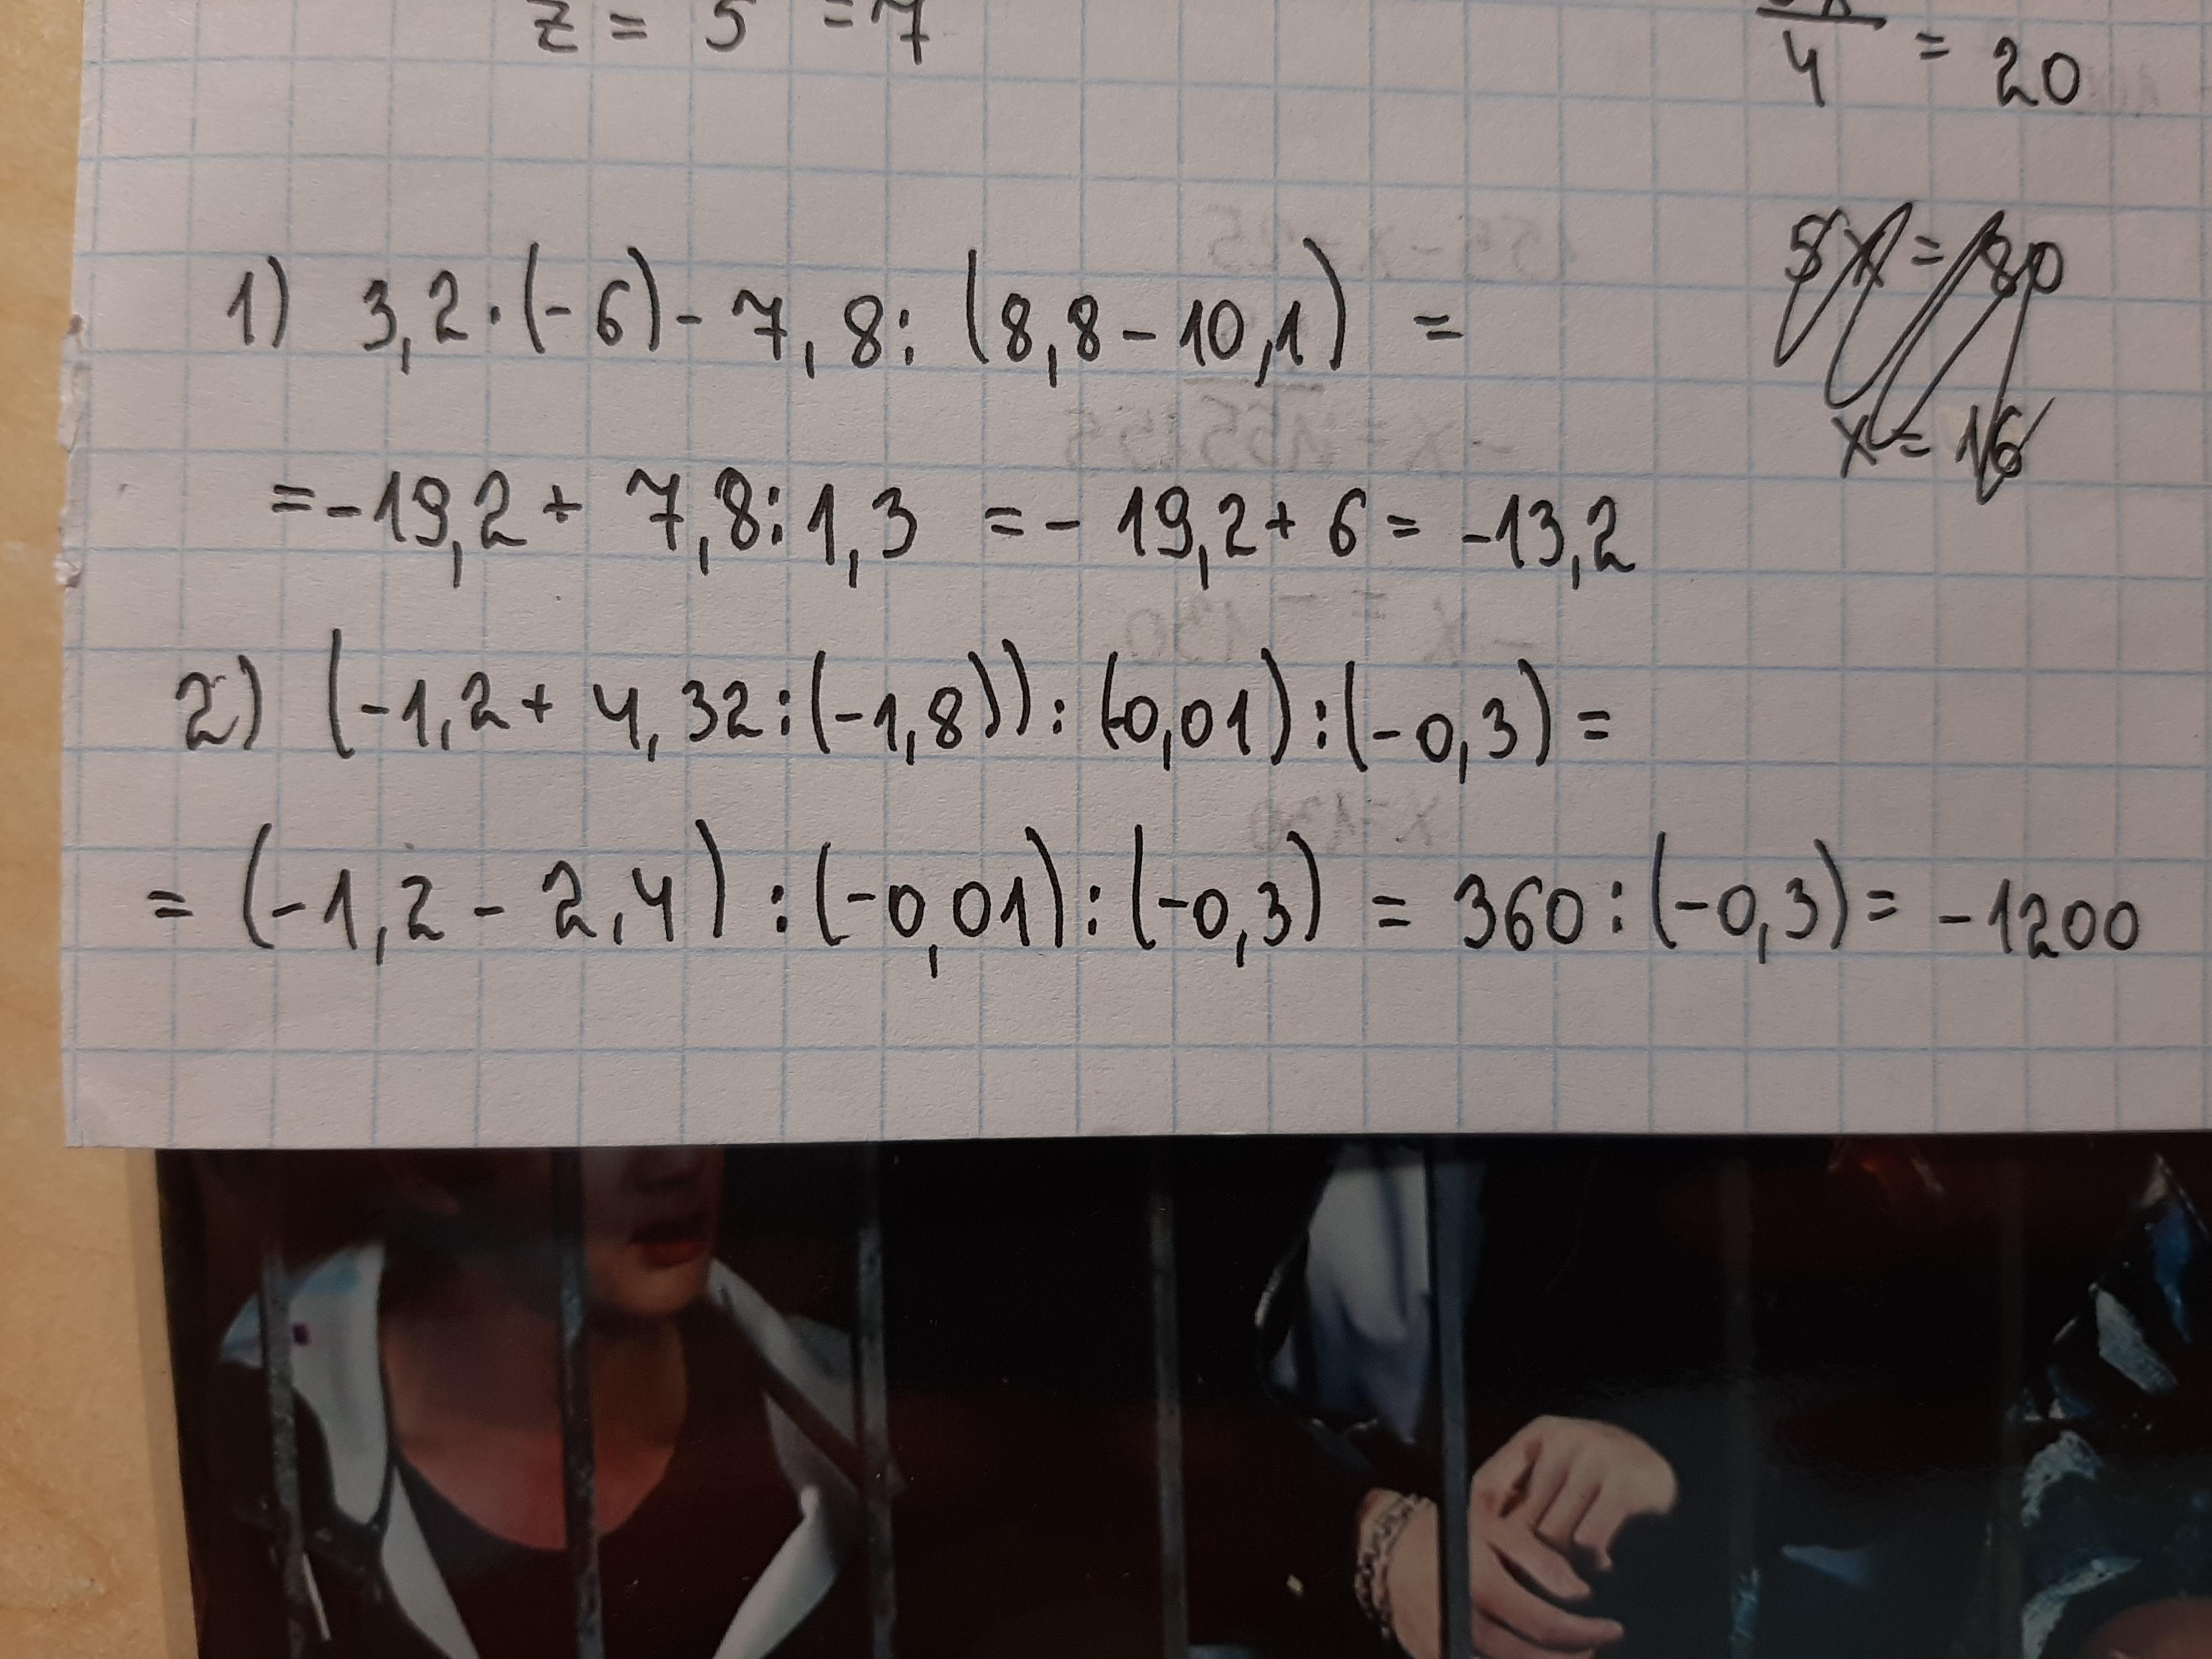 z = 5 = 7
4 = 20
1) 3,2·(-6)- 7,8: (8,8-10,1) =
5x = 80
x = 16
=-19,2+ 7,8:1,3 =- 19,2+ 6= -13,2
2) (-1,2+ 4,32:(-1,8)): (-0,01):(-0,3)=
= (-1,2 - 2,4) :(-0,01):(-0,3) = 360:(-0,3)= -1200